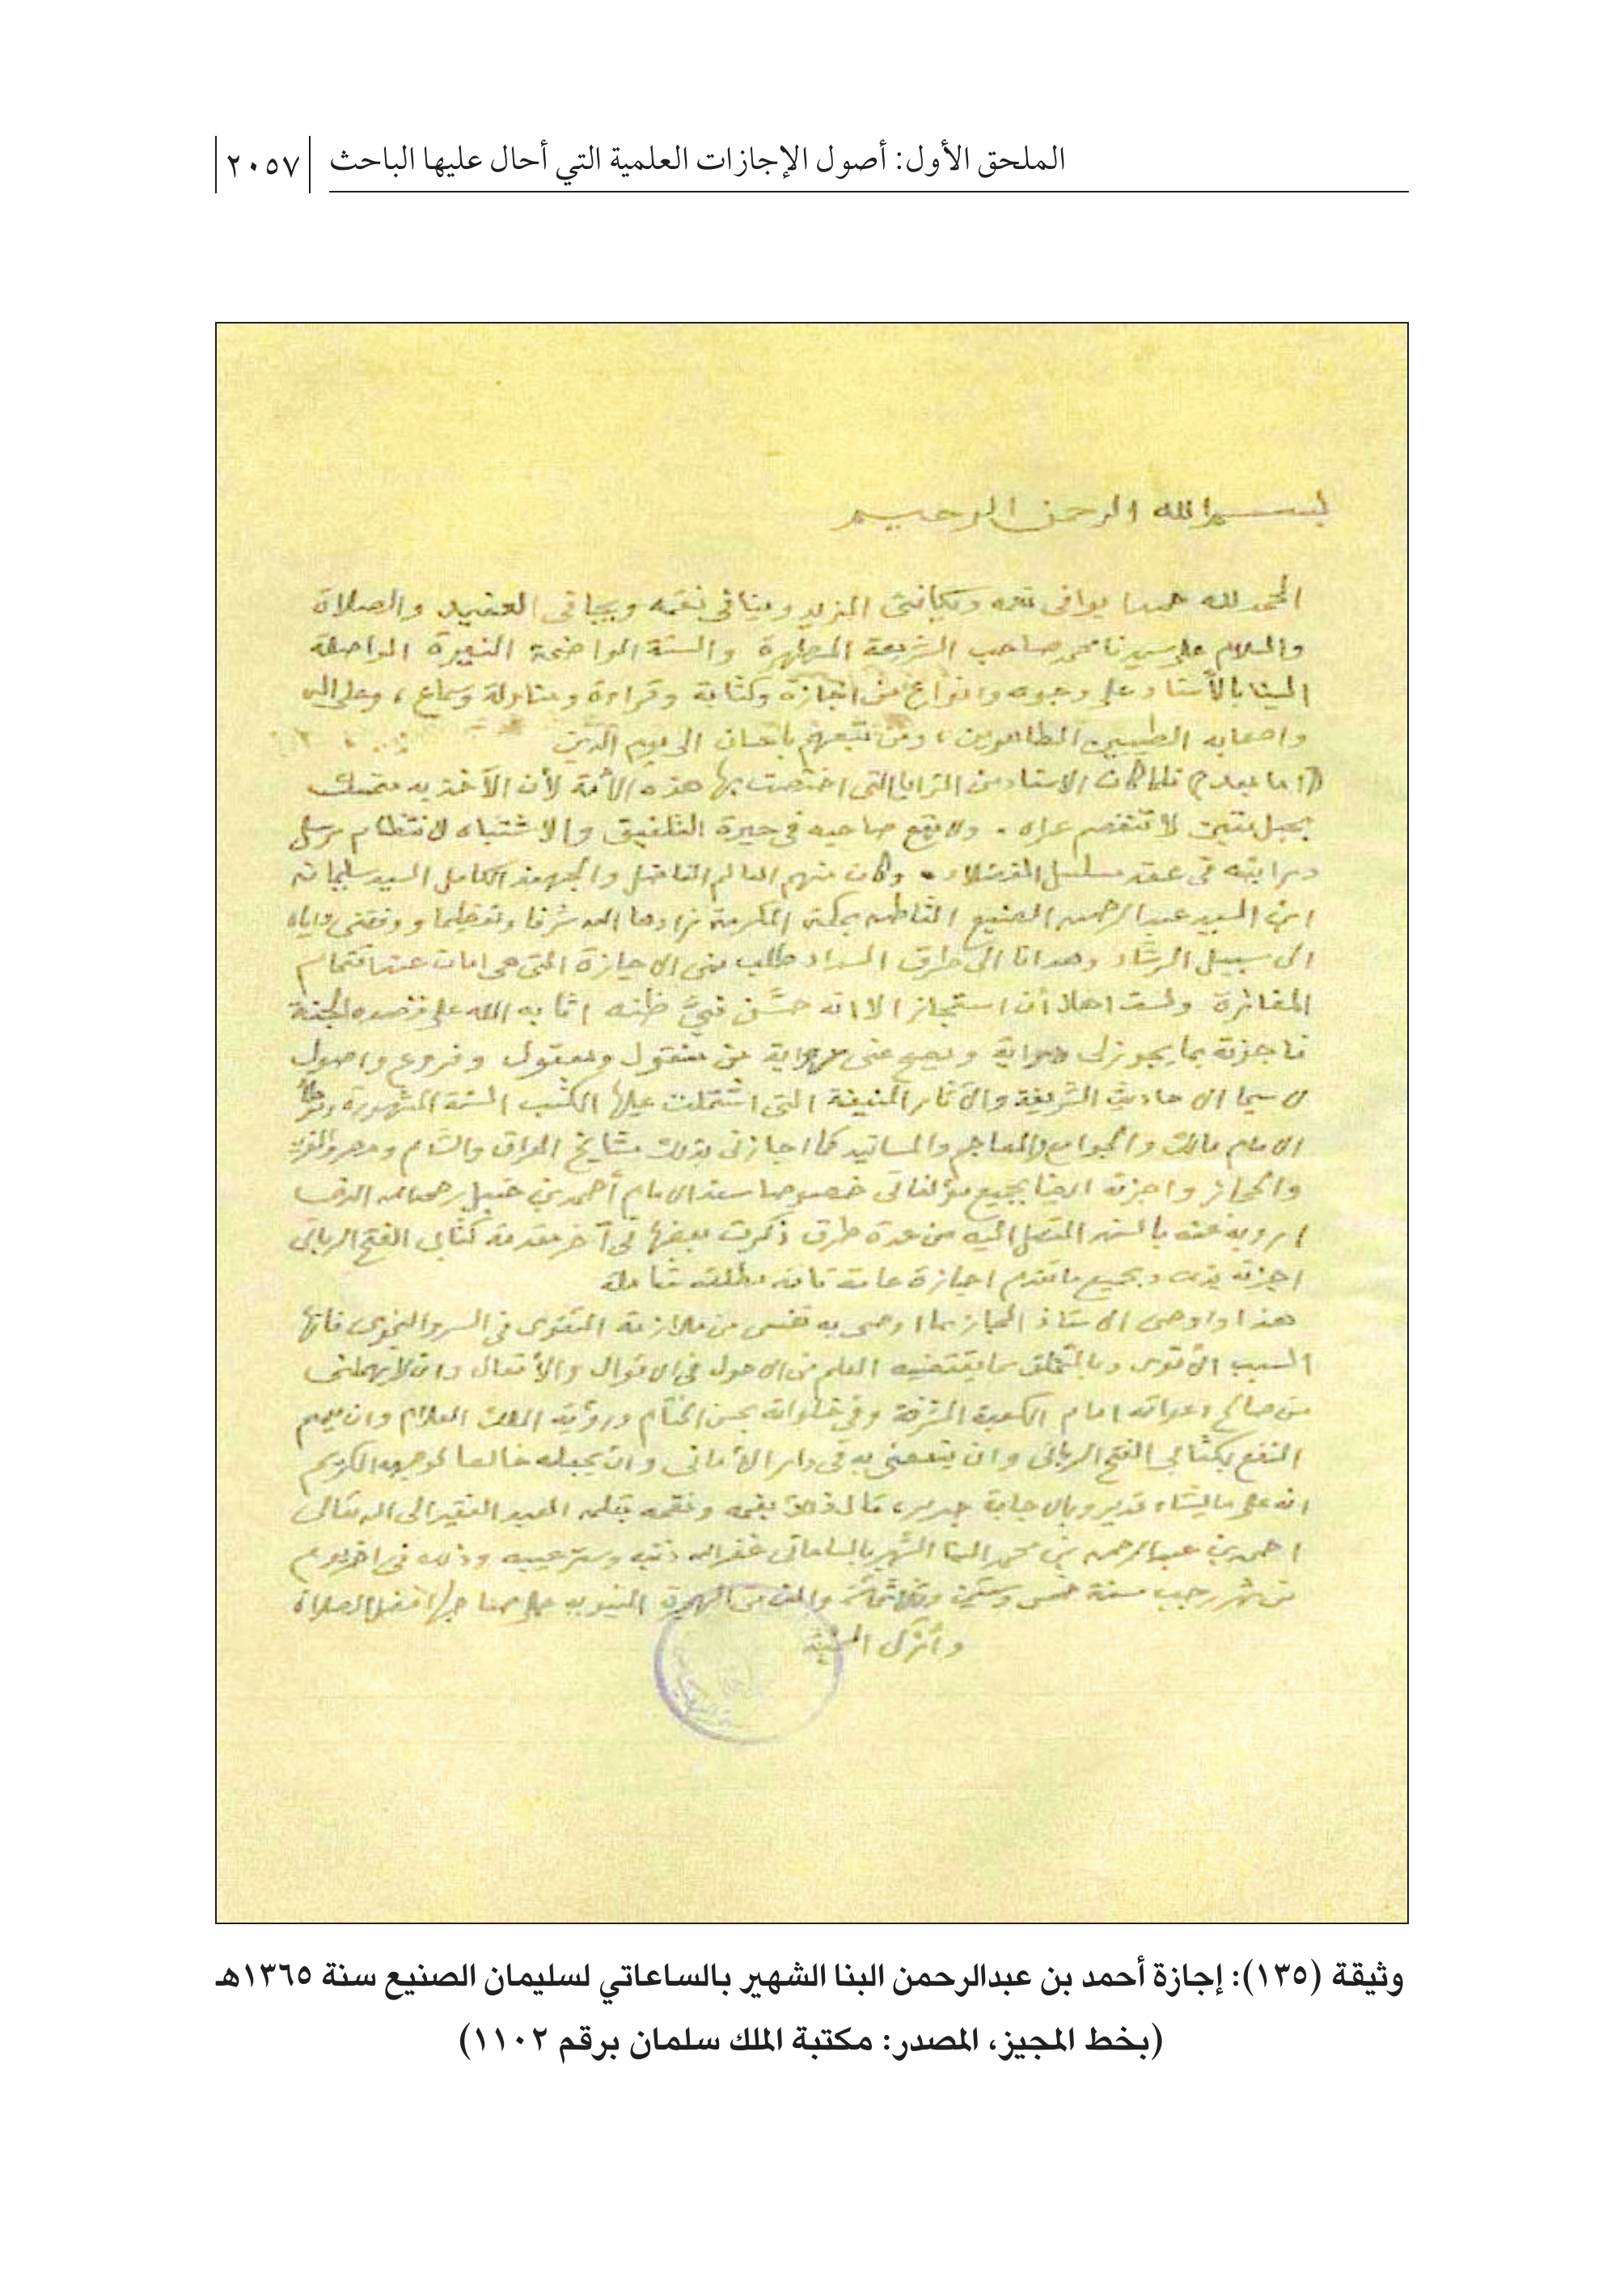 الملحق الأول: أصول الإجازات العلمية التي أحال عليها الباحث
٢٠٥٧
بسم الله الرحمن الرحيم
الحمد لله حمدا يوافى نعمه ويكافئ المزيد وينافي نقمه ويجافى العنيد والصلاة
والسلام على سيدنا محمد صاحب الشريعة المطهرة والسنة الواضحة النيرة الواصلة
الينا بالأسناد على وجوه وانواع من اجازة وكتابة وقراءة ومناولة وسماع ، وعلى اله
واصحابه الطيبين الطاهرين ، ومن تبعهم باحسان الى يوم الدين
(اما بعد) فلما كان الاسناد من المزايا التى اختصت بها هذه الأمة لأن الآخذ به متمسك
بحبل متين لا تنفصم عراه . ولا يقع صاحبه في حيرة التلفيق والاشتباه لانتظام
فى عقد مسلسل الفضلاء . وكان منهم العالم الفاضل والجهبذ الكامل السيد سليمان
ابن السيد عبد الرحمن الصنيع بمكة المكرمة زادها الله شرفا وتعظيما ووفقنى واياه
الى سبيل الرشاد وهدانا الى طرق السداد طلب منى الاجازة التى هى
ولست اهلا أن استجاز الا انه حسَّن فيَّ ظنه اثابه الله على قصده الجنة
فاجزته بما يجوز لى رواية ويصح عنى من منقول ومعقول وفروع واصول
لا سيما الاحاديث الشريفة والآثار المنيفة التى اشتملت عليها الكتب الستة المشهورة وموطأ
الامام مالك والجوامع والمعاجم والمسانيد كما اجازنى بذلك مشايخ العراق والشام ومصر والمغرب
والحجاز واجزته ايضا بجميع مؤلفاتى خصوصا مسند الامام أحمد بن حنبل رحمه الله الذى
ارويه عنه بالسند المتصل اليه من عدة طرق ذكرت بعضها فى آخر مقدمة كتابى الفتح الربانى
اجزته بذلك وبجميع ما تقدم اجازة عامة تامة مطلقة شاملة
هذا واوصى الاستاذ المجاز بما اوصى به نفسى من ملازمة التقوى فى السر والنجوى فانها
السبب الأقوى وبالتخلق بما يقتضيه العلم من الاحوال فى الاقوال والأفعال وان لا يهملنى
من صالح دعواته امام الكعبة المشرفة وفى خلواته بحسن الختام ورؤية الملك العلام وان يعم
النفع بكتابى الفتح الربانى وان ينفعنى به فى دار الأمانى وان يجعله خالصا لوجهه الكريم
انه على ما يشاء قدير وبالاجابة جدير ، قاله بفمه ونمقه بقلمه العبد الفقير الى الله تعالى
احمد بن عبد الرحمن بن محمد البنا الشهير بالساعاتى غفر الله ذنبه وستر عيبه وذلك فى اخر يوم
من شهر رجب سنة خمس وستين وثلاثمائة والف من الهجرة النبوية على صاحبها افضل الصلاة
وأزكى التحية
وثيقة (١٣٥): إجازة أحمد بن عبدالرحمن البنا الشهير بالساعاتي لسليمان الصنيع سنة ١٣٦٥هـ
(بخط المجيز، المصدر: مكتبة الملك سلمان برقم ١١٠٢)